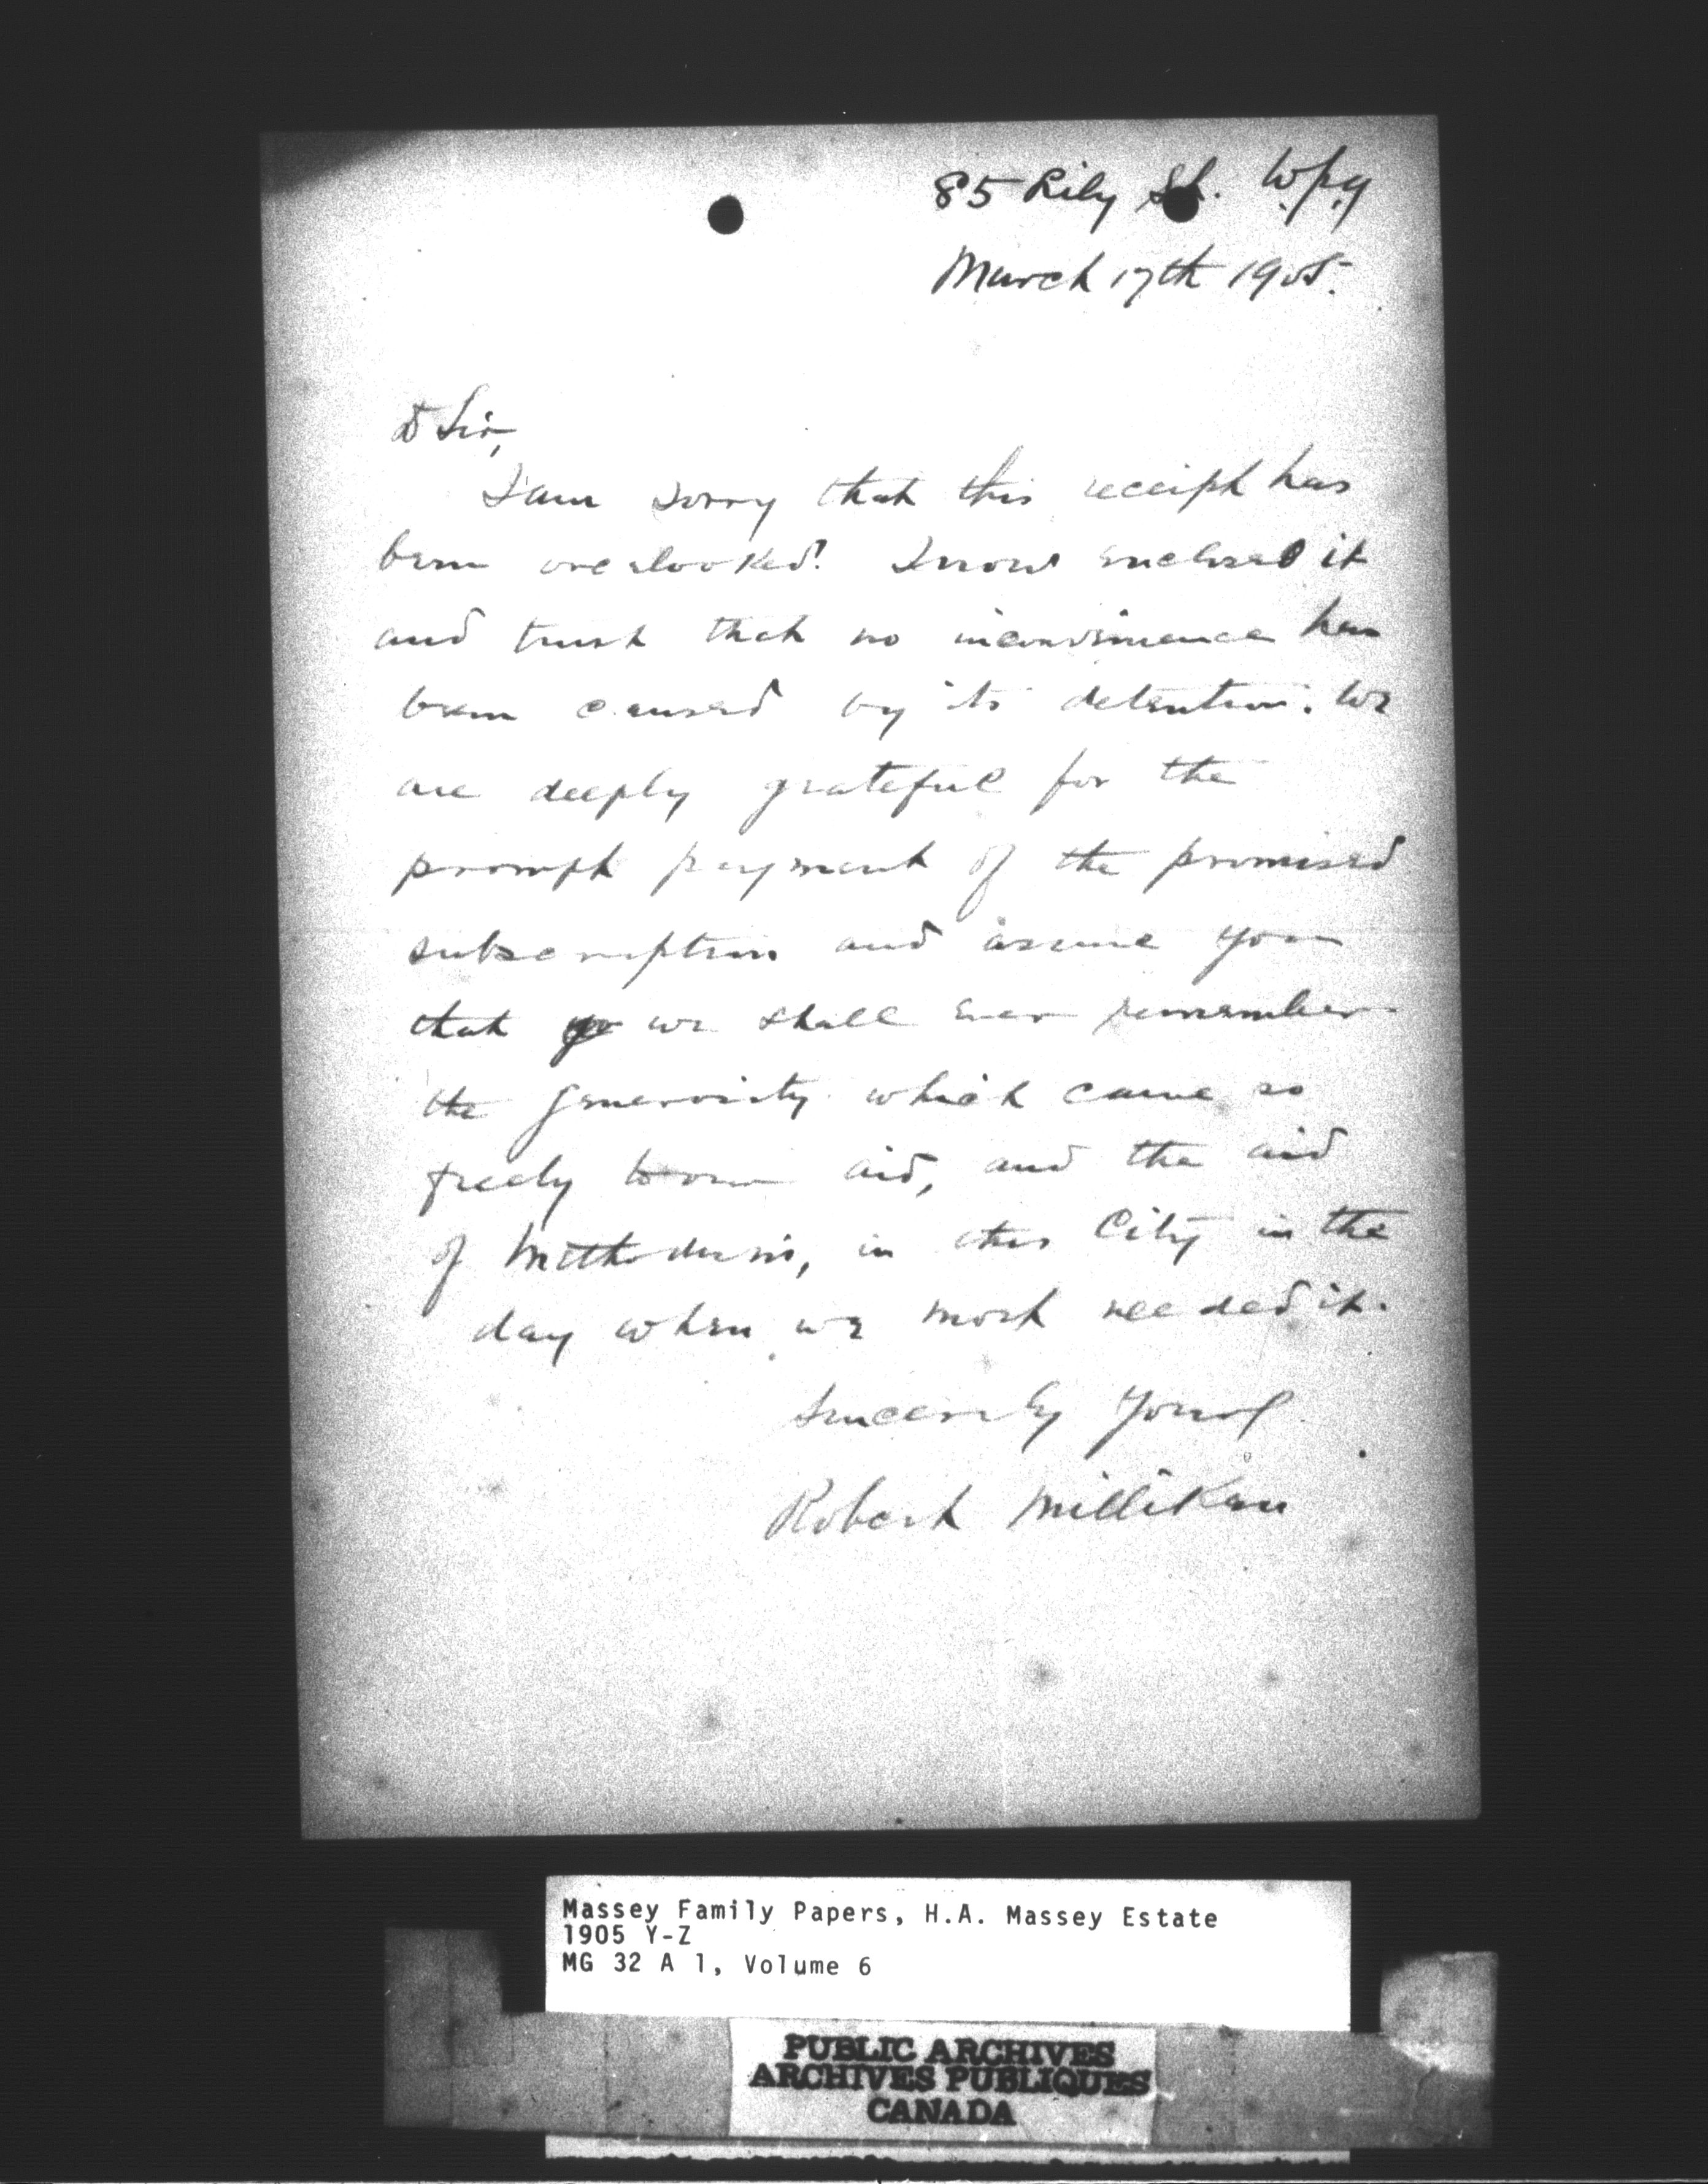 85 Lily St. Wpg
March 17th 1905.
D Sir,
I am sorry that this receipt has
been overlooked. I now enclose it
and trust that no inconvenience has
been caused by its detention. We
are deeply grateful for the
prompt payment of the promised
subscription and assure you
that we shall ever remember
the generosity which came so
freely to our aid, and the aid
of Methodism, in this City in the
day when we most needed it.
Sincerely Yours
Robert Milliken
Massey Family Papers, H.A. Massey Estate
1905 Y-Z
MG 32 A 1, Volume 6
PUBLIC ARCHIVES
ARCHIVES PUBLIQUES
CANADA